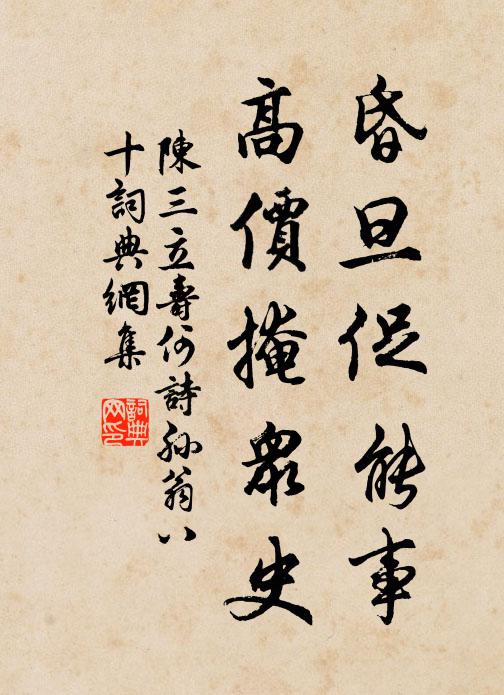 昏旦促能事
高價掩衆史
陳三立壽何詩孫翁八
十詞典網集
詞典网印